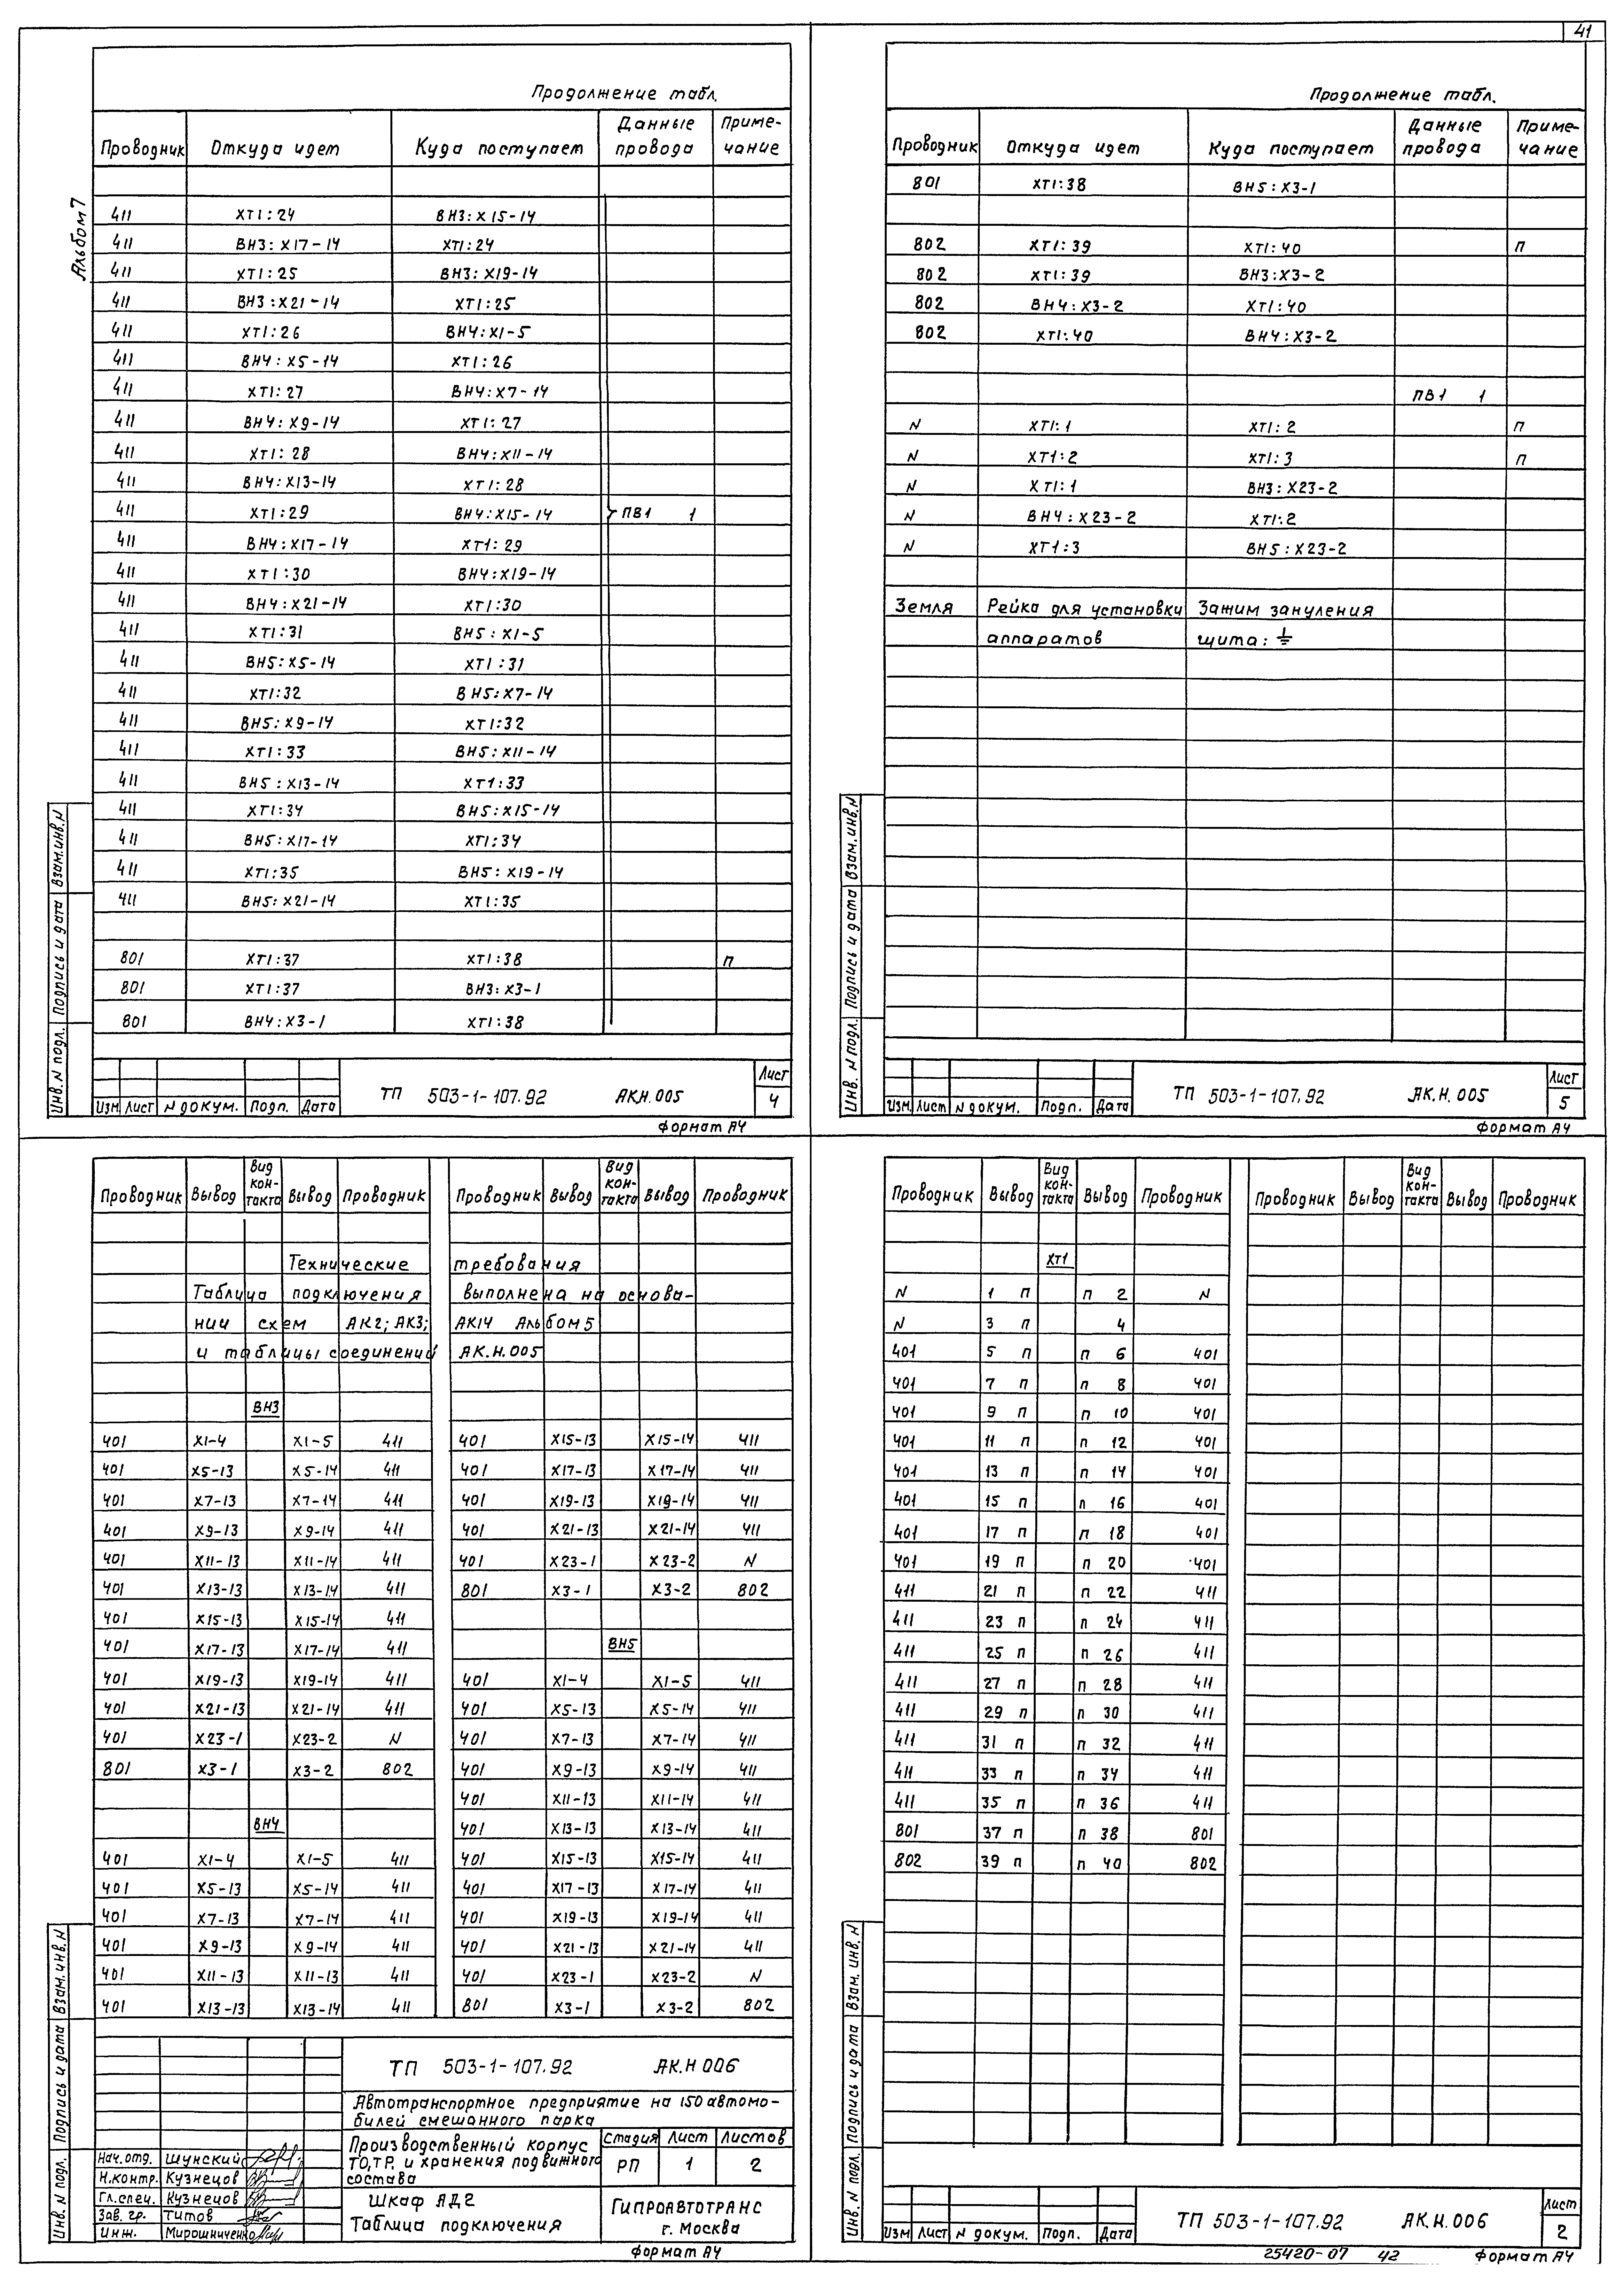 41
Альбом 7
Продолжение табл.
Проводник Откуда идет Куда поступает Данные провода Примечание
411 XT1:24 ВН3:X15-14
411 ВН3:X17-14 XT1:24
411 XT1:25 ВН3:X19-14
411 ВН3:X21-14 XT1:25
411 XT1:26 ВН4:X1-5
411 ВН4:X5-14 XT1:26
411 XT1:27 ВН4:X7-14
411 ВН4:X9-14 XT1:27
411 XT1:28 ВН4:X11-14
411 ВН4:X13-14 XT1:28
411 XT1:29 ВН4:X15-14 ПВ1 1
411 ВН4:X17-14 XT1:29
411 XT1:30 ВН4:X19-14
411 ВН4:X21-14 XT1:30
411 XT1:31 ВН5:X1-5
411 ВН5:X5-14 XT1:31
411 XT1:32 ВН5:X7-14
411 ВН5:X9-14 XT1:32
411 XT1:33 ВН5:X11-14
411 ВН5:X13-14 XT1:33
411 XT1:34 ВН5:X15-14
411 ВН5:X17-14 XT1:34
411 XT1:35 ВН5:X19-14
411 ВН5:X21-14 XT1:35
801 XT1:37 XT1:38 п
801 XT1:37 ВН3:X3-1
801 ВН4:X3-1 XT1:38
Инв. N подл. Подпись и дата Взам.инв.N
Изм Лист N докум. Подп. Дата
ТП 503-1-107.92 АК.Н.005
Лист
4
Формат А4
Продолжение табл.
Проводник Откуда идет Куда поступает Данные провода Примечание
801 XT1:38 ВН5:X3-1
802 XT1:39 XT1:40 п
802 XT1:39 ВН3:X3-2
802 ВН4:X3-2 XT1:40
802 XT1:40 ВН4:X3-2
ПВ1 1
N XT1:1 XT1:2 п
N XT1:2 XT1:3 п
N XT1:1 ВН3:X23-2
N ВН4:X23-2 XT1:2
N XT1:3 ВН5:X23-2
Земля Рейка для установки Зажим зануления
аппаратов щита: ⏚
Инв. N подл. Подпись и дата Взам.инв.N
Изм Лист N докум. Подп. Дата
ТП 503-1-107.92 АК.Н.005
Лист
5
Формат А4
Проводник Вывод Вид контакта Вывод Проводник Проводник Вывод Вид контакта Вывод Проводник
Технические требования
Таблица подключения выполнена на основа-
нии схем АК2; АК3; АК14 Альбом 5
и таблицы соединений АК.Н.005
ВН3
401 X1-4 X1-5 411
401 X5-13 X5-14 411
401 X7-13 X7-14 411
401 X9-13 X9-14 411
401 X11-13 X11-14 411
401 X13-13 X13-14 411
401 X15-13 X15-14 411
401 X17-13 X17-14 411
401 X19-13 X19-14 411
401 X21-13 X21-14 411
401 X23-1 X23-2 N
801 X3-1 X3-2 802
ВН4
401 X1-4 X1-5 411
401 X5-13 X5-14 411
401 X7-13 X7-14 411
401 X9-13 X9-14 411
401 X11-13 X11-13 411
401 X13-13 X13-14 411
401 X15-13 X15-14 411
401 X17-13 X17-14 411
401 X19-13 X19-14 411
401 X21-13 X21-14 411
401 X23-1 X23-2 N
801 X3-1 X3-2 802
ВН5
401 X1-4 X1-5 411
401 X5-13 X5-14 411
401 X7-13 X7-14 411
401 X9-13 X9-14 411
401 X11-13 X11-14 411
401 X13-13 X13-14 411
401 X15-13 X15-14 411
401 X17-13 X17-14 411
401 X19-13 X19-14 411
401 X21-13 X21-14 411
401 X23-1 X23-2 N
801 X3-1 X3-2 802
Инв. N подл. Подпись и дата Взам.инв.N
ТП 503-1-107.92 АК.Н 006
Автотранспортное предприятие на 150 автомо-
билей смешанного парка
Нач.отд. Шунский
Н.контр. Кузнецов
Гл.спец. Кузнецов
Зав. гр. Титов
Инж. Мирошниченко
Производственный корпус
ТО,ТР, и хранения подвижного
состава
Стадия Лист Листов
РП 1 2
Шкаф АД2
Таблица подключения
ГИПРОАВТОТРАНС
г. Москва
Формат А4
Проводник Вывод Вид контакта Вывод Проводник Проводник Вывод Вид контакта Вывод Проводник
XT1
N 1 п п 2 N
N 3 п 4
401 5 п п 6 401
401 7 п п 8 401
401 9 п п 10 401
401 11 п п 12 401
401 13 п п 14 401
401 15 п п 16 401
401 17 п п 18 401
401 19 п п 20 401
411 21 п п 22 411
411 23 п п 24 411
411 25 п п 26 411
411 27 п п 28 411
411 29 п п 30 411
411 31 п п 32 411
411 33 п п 34 411
411 35 п п 36 411
801 37 п п 38 801
802 39 п п 40 802
Инв. N подл. Подпись и дата Взам. инв. N
Изм Лист N докум. Подп. Дата
ТП 503-1-107.92 АК.Н.006
Лист
2
25420-07 42 Формат А4